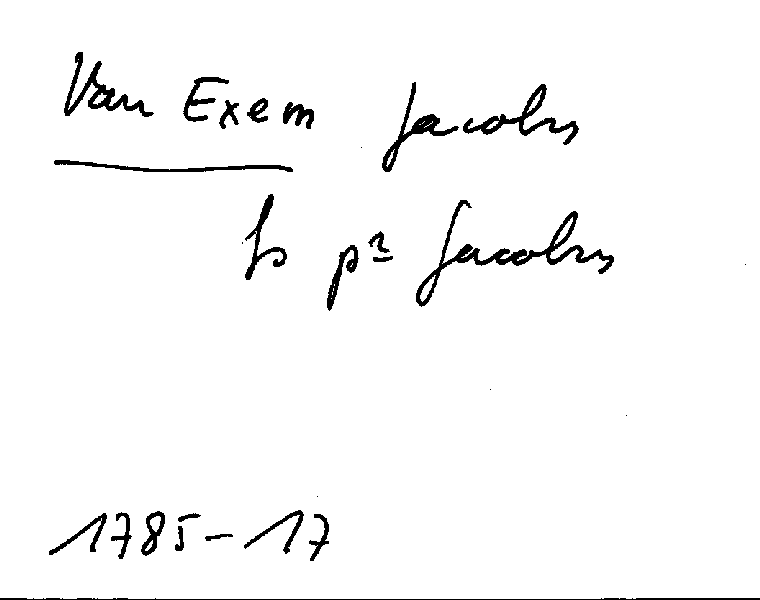 Van Exem Jacobus
fs pr Jacobus
1785-17